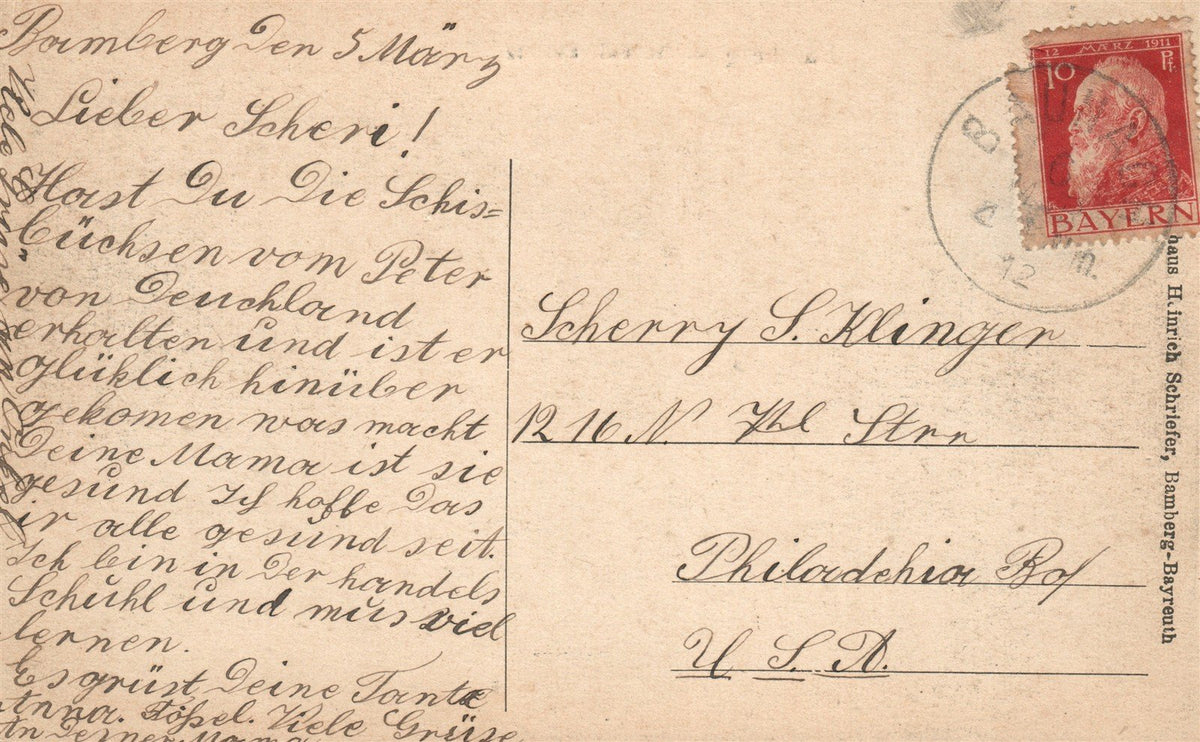 Bamberg den 5 März
Lieber Scheri!
Hast Du Die Schis=
büchsen vom Peter
von Deuchland
erhalten und ist er
glüklich hinüber
gekomen was macht
Deine Mama ist sie
gesund Ich hoffe Das
ir alle gesund seit.
Ich bin in Der handels
Schuhl und mus viel
lernen.
Es grüst Deine Tante
Anna. Viele Grüse
An Deiner Mama
Viele Grüse
12 MÄRZ 1911
10 Pf.
BAYERN
12
Scherry S. Klinger
1216 N. Str
Philadehia
U. S. A.
haus Heinrich Schriefer, Bamberg-Bayreuth